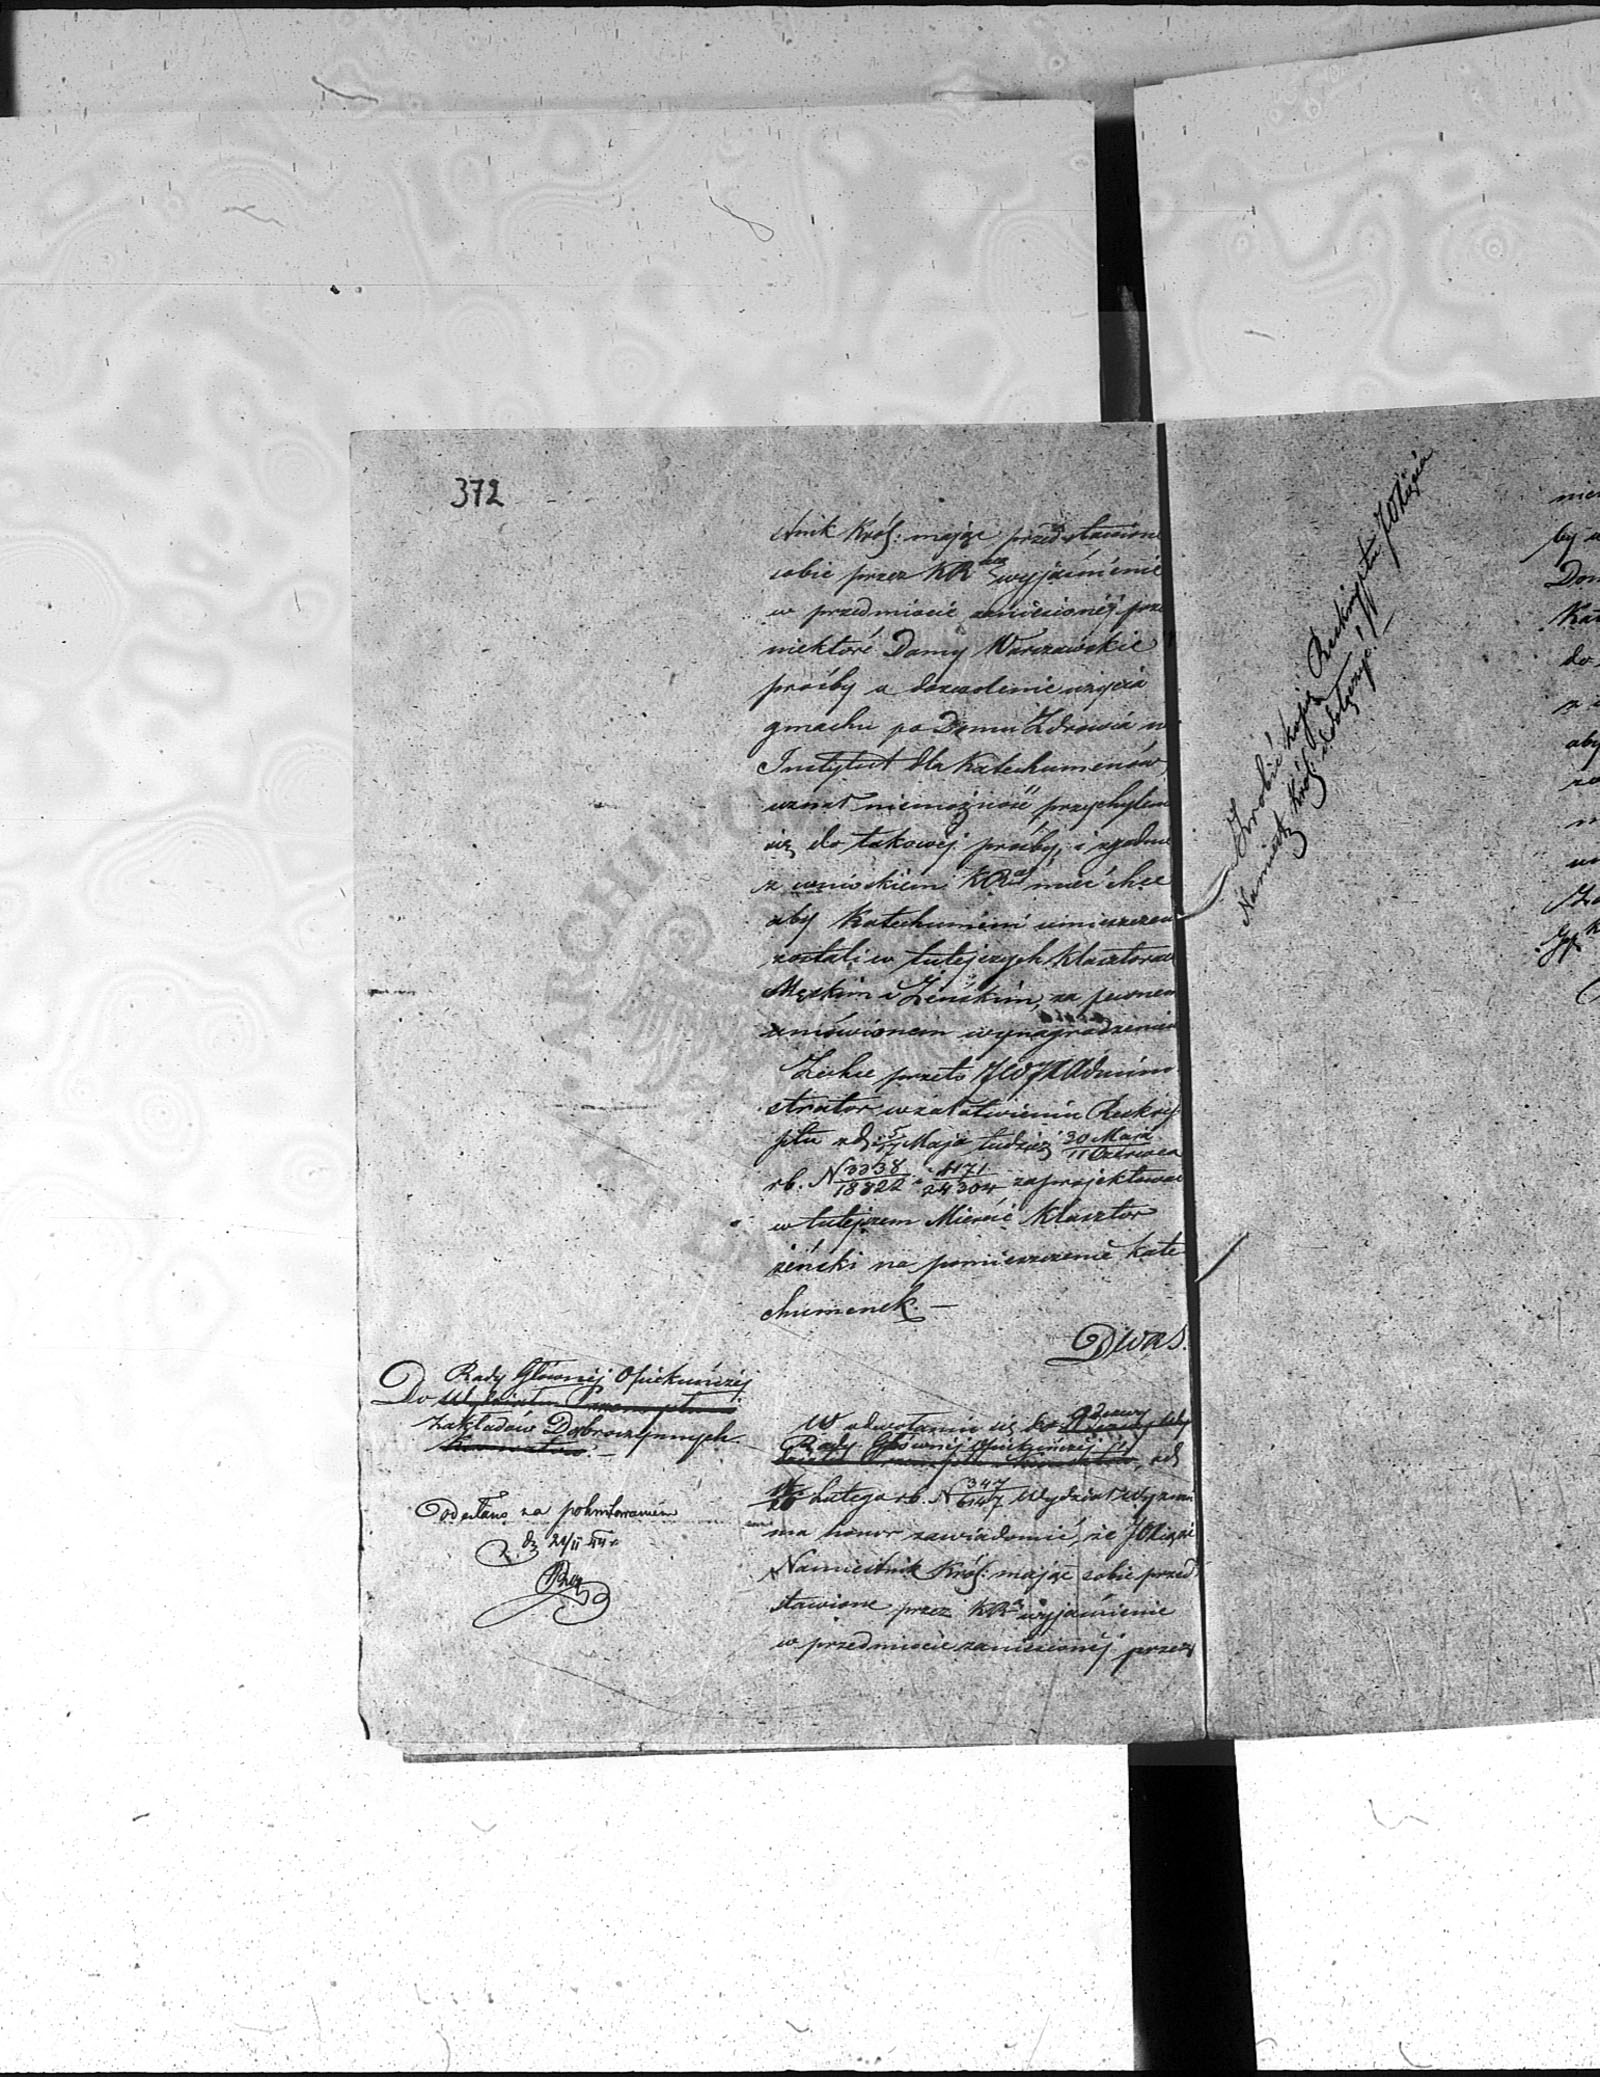 372
stnik Król: mając przedstawione
sobie przez KR wyjaśnienie
w przedmiocie zaniesionéj prze
niektóre Damy Warszawskie
prośby o dozwolenie użycia
gmachu po Domu Zdrowia n
Instytut dla Katechumenów,
uznał niemożność przychylen
się do takowéj prośby, i zgodnie
z wnioskiem KR mieć chce
aby Katechumeni umieszczen
zostali w tutejszych Klasztorac
Męzkim i Żeńskim, za pewnem
umówionem wynagrodzeniem
Zechce przeto JWJX Admini
strator w załatwieniu Reskry
ptu z d: 5/17 Maja tudzież 30 Maja / 11 Czerwca
rb. N 3338/18822 i 4171/24304 zaprojektować
w tutejszem Mieście Klasztor
żeński na pomieszczenie Kate
chumenek. —
D W a S.
Rady Głównéj Opiekuńczéj
Do Wydziału Przemysłu i
Zakładów Dobroczynnych.
Kunsztów. —
Odesłano za pokwitowaniem
d. 21/II
W odwołaniu się do Odezwy
Rady Głównéj Opiekuńczéj
Lutego rb. N 347/6147 Wydział Wyznań
ma honor zawiadomić, że JOXiąże
Namiestnik Król: mając sobie przed
stawione przez KR wyjaśnienie
w przedmiocie zaniesionéj przez
Zrobić kopię Reskryptu JOXięcia
Namiest: Król: i dołączyć. —
by
Dom
Kat
do
z
aby